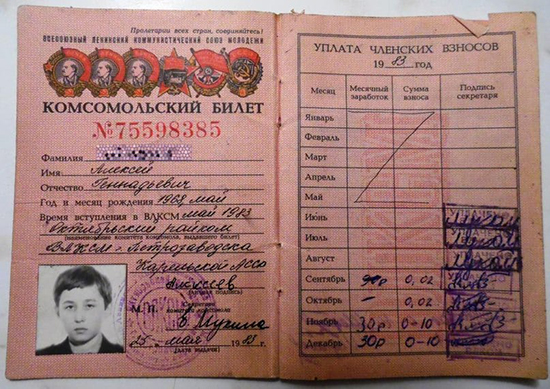 Пролетарии всех стран, соединяйтесь!
ВСЕСОЮЗНЫЙ ЛЕНИНСКИЙ КОММУНИСТИЧЕСКИЙ СОЮЗ МОЛОДЕЖИ
КОМСОМОЛЬСКИЙ БИЛЕТ
№75598385
Фамилия
Имя Алексей
Отчество Геннадьевич
Год и месяц рождения 1968 май
Время вступления в ВЛКСМ май 1983
Октябрьский райком
(наименование комитета комсомола, выдавшего билет)
ВЛКСМ г. Петрозаводска
Карельской АССР
Алексеев
(личная подпись)
М. П. Секретарь
комитета комсомола
25 мая 1983 г.
(дата выдачи)
УПЛАТА ЧЛЕНСКИХ ВЗНОСОВ
1983 год
Месяц Месячный заработок Сумма взноса Подпись секретаря
Январь
Февраль
Март
Апрель
Май
Июнь
Июль
Август
Сентябрь 0,02
Октябрь — 0,02
Ноябрь 30р 0-10
Декабрь 30р 0-10